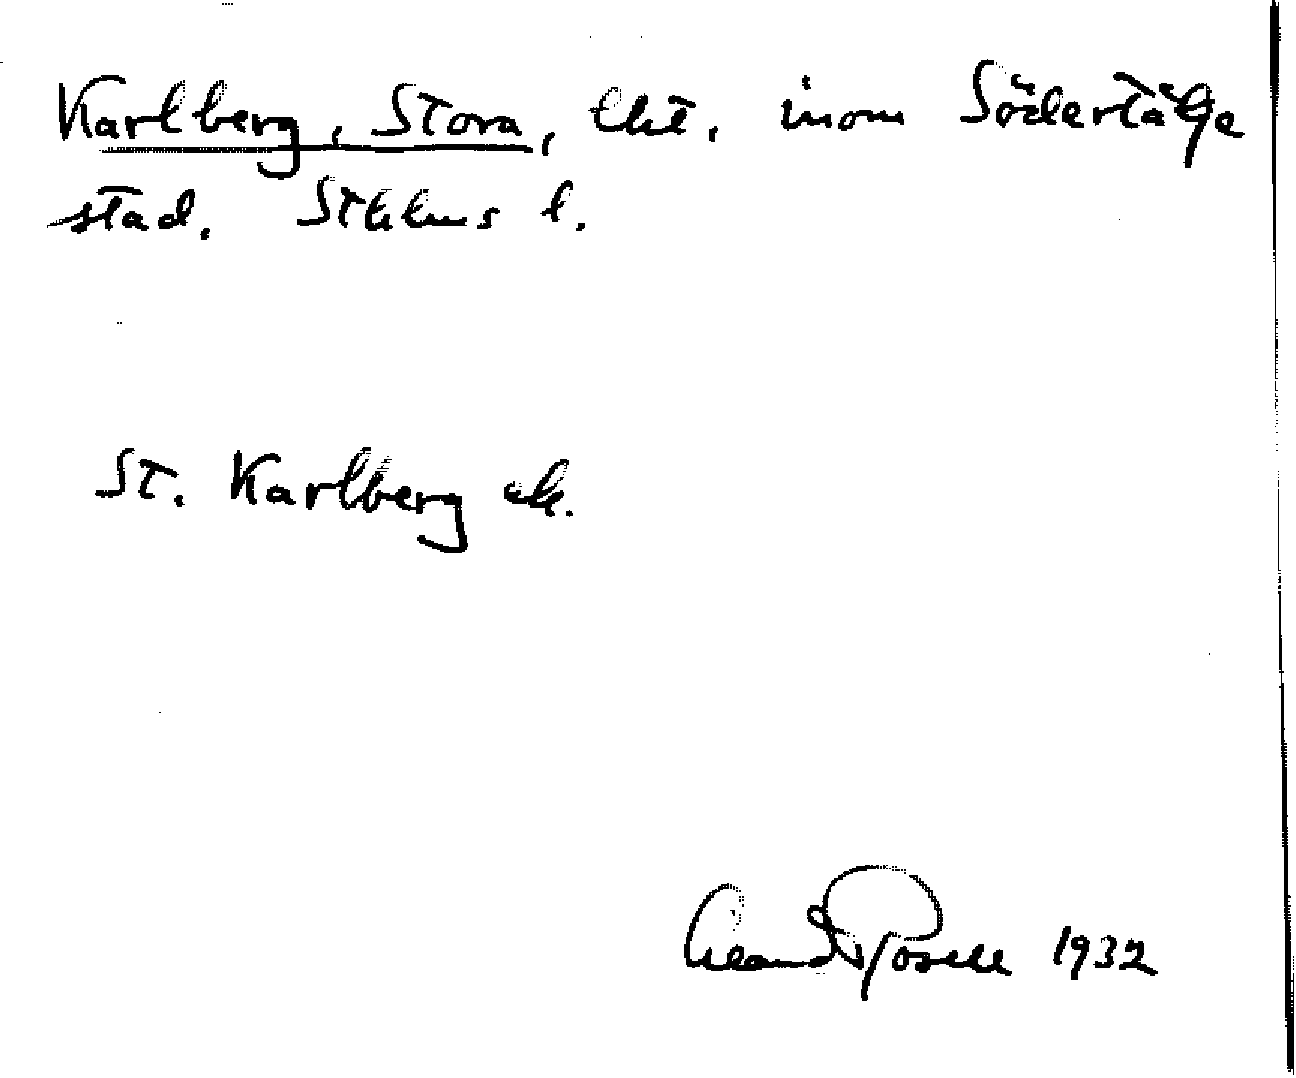 Karlberg, Stora, lht. inom Södertälje
stad. Sthlms l.
St. Karlberg ek.
Rosell 1932